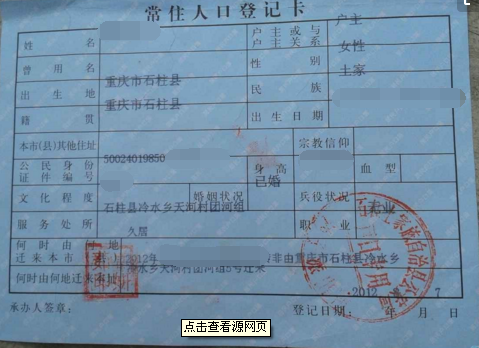 常住人口登记卡
姓 名
户主或与户主关系
户主
曾用名
性 别
女性
出生地
重庆市石柱县
民 族
土家
籍 贯
重庆市石柱县
出生日期
本市(县)其他住址
宗教信仰
公民身份证件编号
50024019850
身高
血型
文化程度
婚姻状况
已婚
兵役状况
服务处所
石柱县冷水乡天河村团河组
职 业
何时由何地迁来本市
久居
2012年
非由重庆市石柱县冷水乡
何时由何地迁来本址
冷水乡天河村团河组5号迁来
承办人签章:
登记日期: 2012 年 7 月 日
点击查看源网页